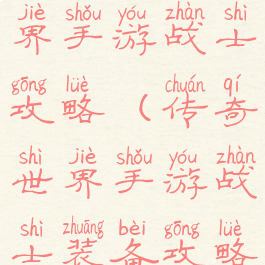 jiè shǒu yóu zhàn shì
界手游战士
gōng lüè chuán qí
攻略（传奇
shì jiè shǒu yóu zhàn
世界手游战
shì zhuāng bèi gōng lüè
士装备攻略